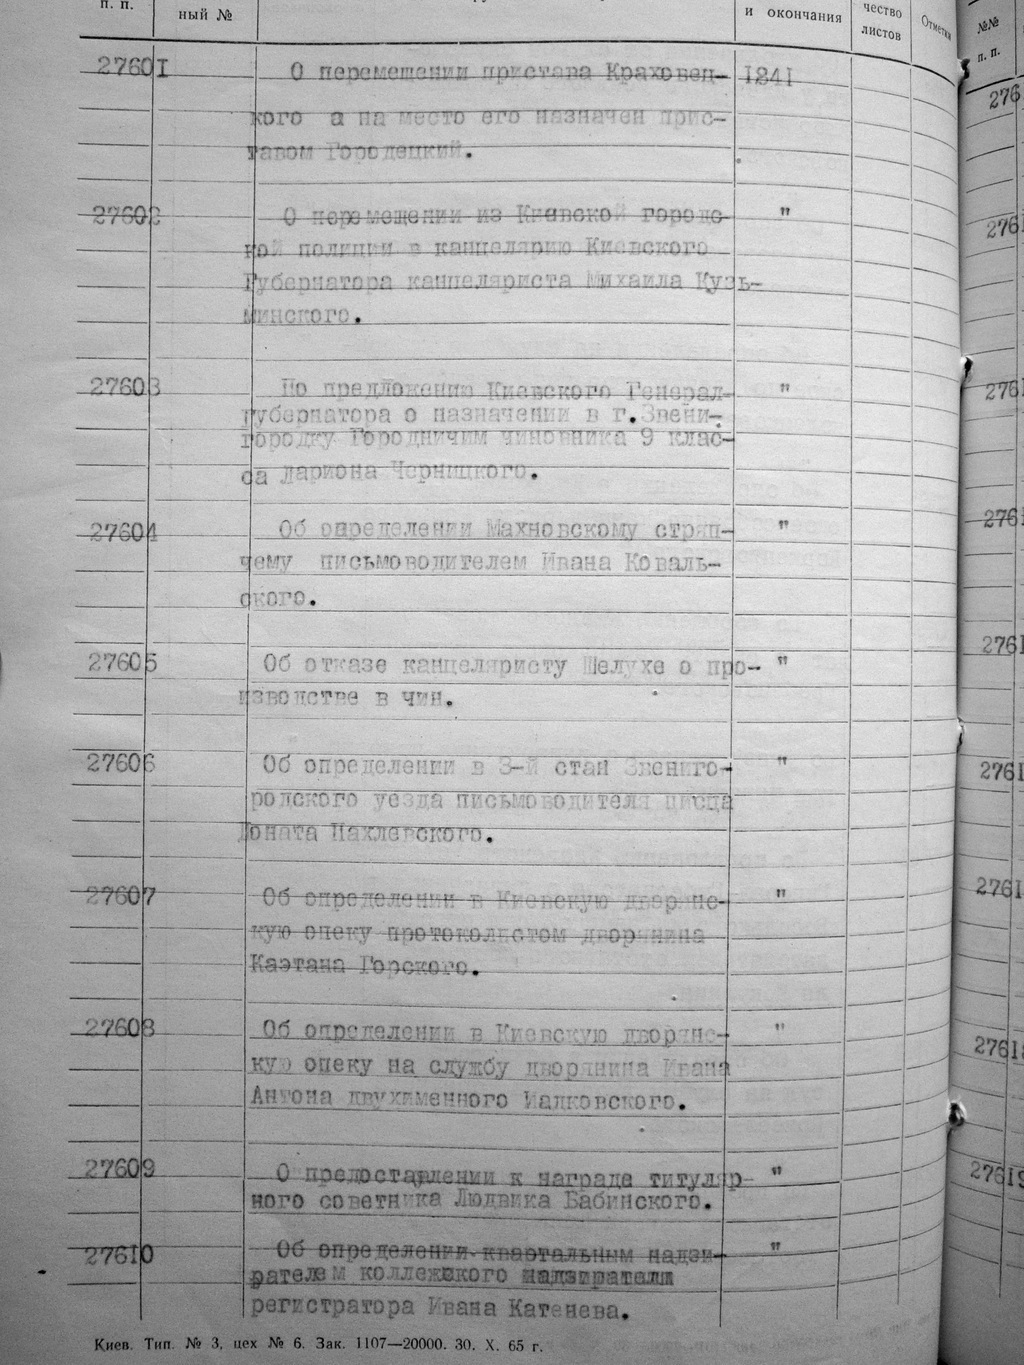 п. п.
ный №
и окончания
чество
листов
Отметки
№№
п. п.
27601 О перемещении пристава Краховец- 1841
кого а на место его назначен прис-
тавом Городецкий.
27602 О перемещении из Киевской городс- "
кой полиции в канцелярию Киевского
Губернатора канцеляриста Михаила Кузь-
минского.
27603 По предложению Киевского Генерал- "
губернатора о назначении в г.Звени-
городку Городничим чиновника 9 клас-
са Лариона Черницкого.
27604 Об определении Махновскому стряп- "
чему письмоводителем Ивана Коваль-
ского.
27605 Об отказе канцеляристу Шелухе о про- "
изводстве в чин.
27606 Об определении в 3-й стан Звениго- "
родского уезда письмоводителя писца
Доната Пахлевского.
27607 Об определении в Киевскую дворянс- "
кую опеку протоколистом дворянина
Каэтана Горского.
27608 Об определении в Киевскую дворянс- "
кую опеку на службу дворянина Ивана
Антона двухименного Иалковского.
27609 О предоставлении к награде титуляр- "
ного советника Людвика Бабинского.
27610 Об определении квартальным надзи- "
рателем коллежского надзирателя
регистратора Ивана Катенева.
Киев. Тип. № 3, цех № 6. Зак. 1107—20000. 30. X. 65 г.